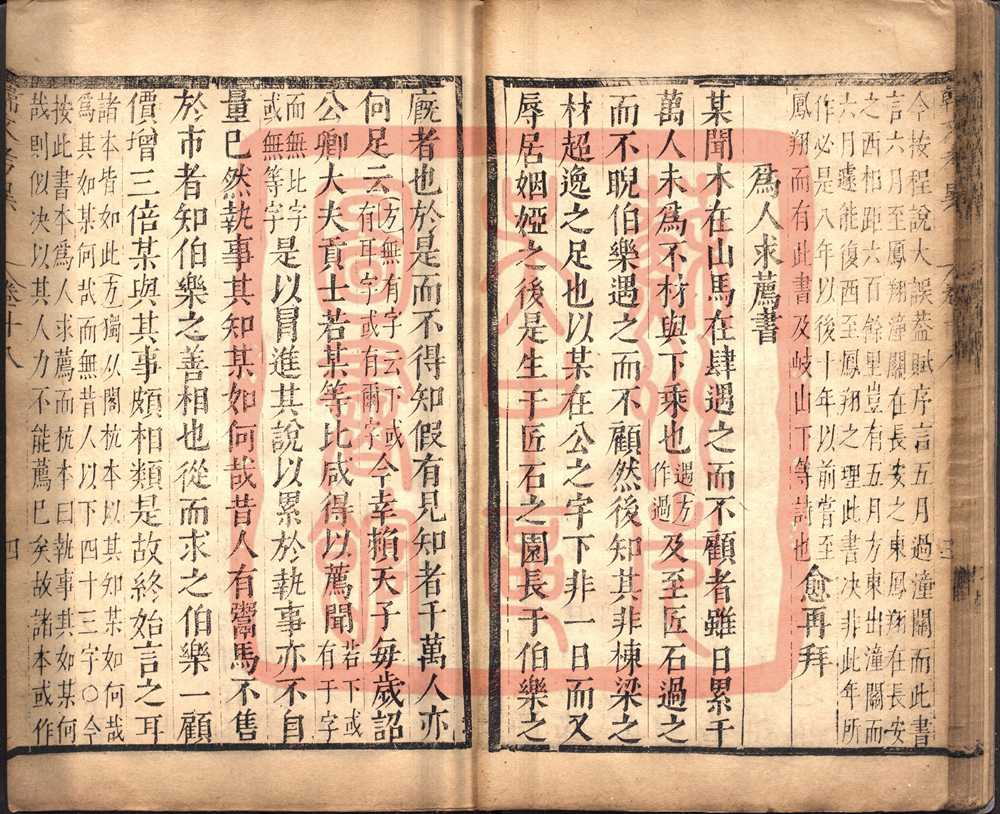 今按程說大誤蓋賦序言五月過潼關而此書
言六月至鳳翔潼關在長安之東鳳翔在長安
之西相距六百餘里豈有五月方東出潼關而
六月遽能復西至鳳翔之理此書决非此年所
作必是八年以後十年以前嘗至
鳳翔而有此書及岐山下等詩也愈再拜
爲人求薦書
某聞木在山馬在肆遇之而不顧者雖日累千
萬人未爲不材與下乘也遇方作過及至匠石過之
而不睨伯樂遇之而不顧然後知其非棟梁之
材超逸之足也以某在公之宇下非一日而又
辱居姻婭之後是生于匠石之園長于伯樂之
廐者也於是而不得知假有見知者千萬人亦
何足云方無有字云下或有耳字或有爾字今幸賴天子每歲詔
公卿大夫貢士若某等比咸得以薦聞若下或有于字
而無比字或無等字是以冒進其說以累於執事亦不自
量已然執事其知某如何哉昔人有鬻馬不售
於市者知伯樂之善相也從而求之伯樂一顧
價增三倍某與其事頗相類是故終始言之耳
諸本皆如此方獨从閣杭本以其知某如何哉
爲其如某何哉而無昔人以下四十三字○今
按此書本爲人求薦而杭本曰執事其如某何
哉則似决以其人力不能薦已矣故諸本或作
卷十八
四